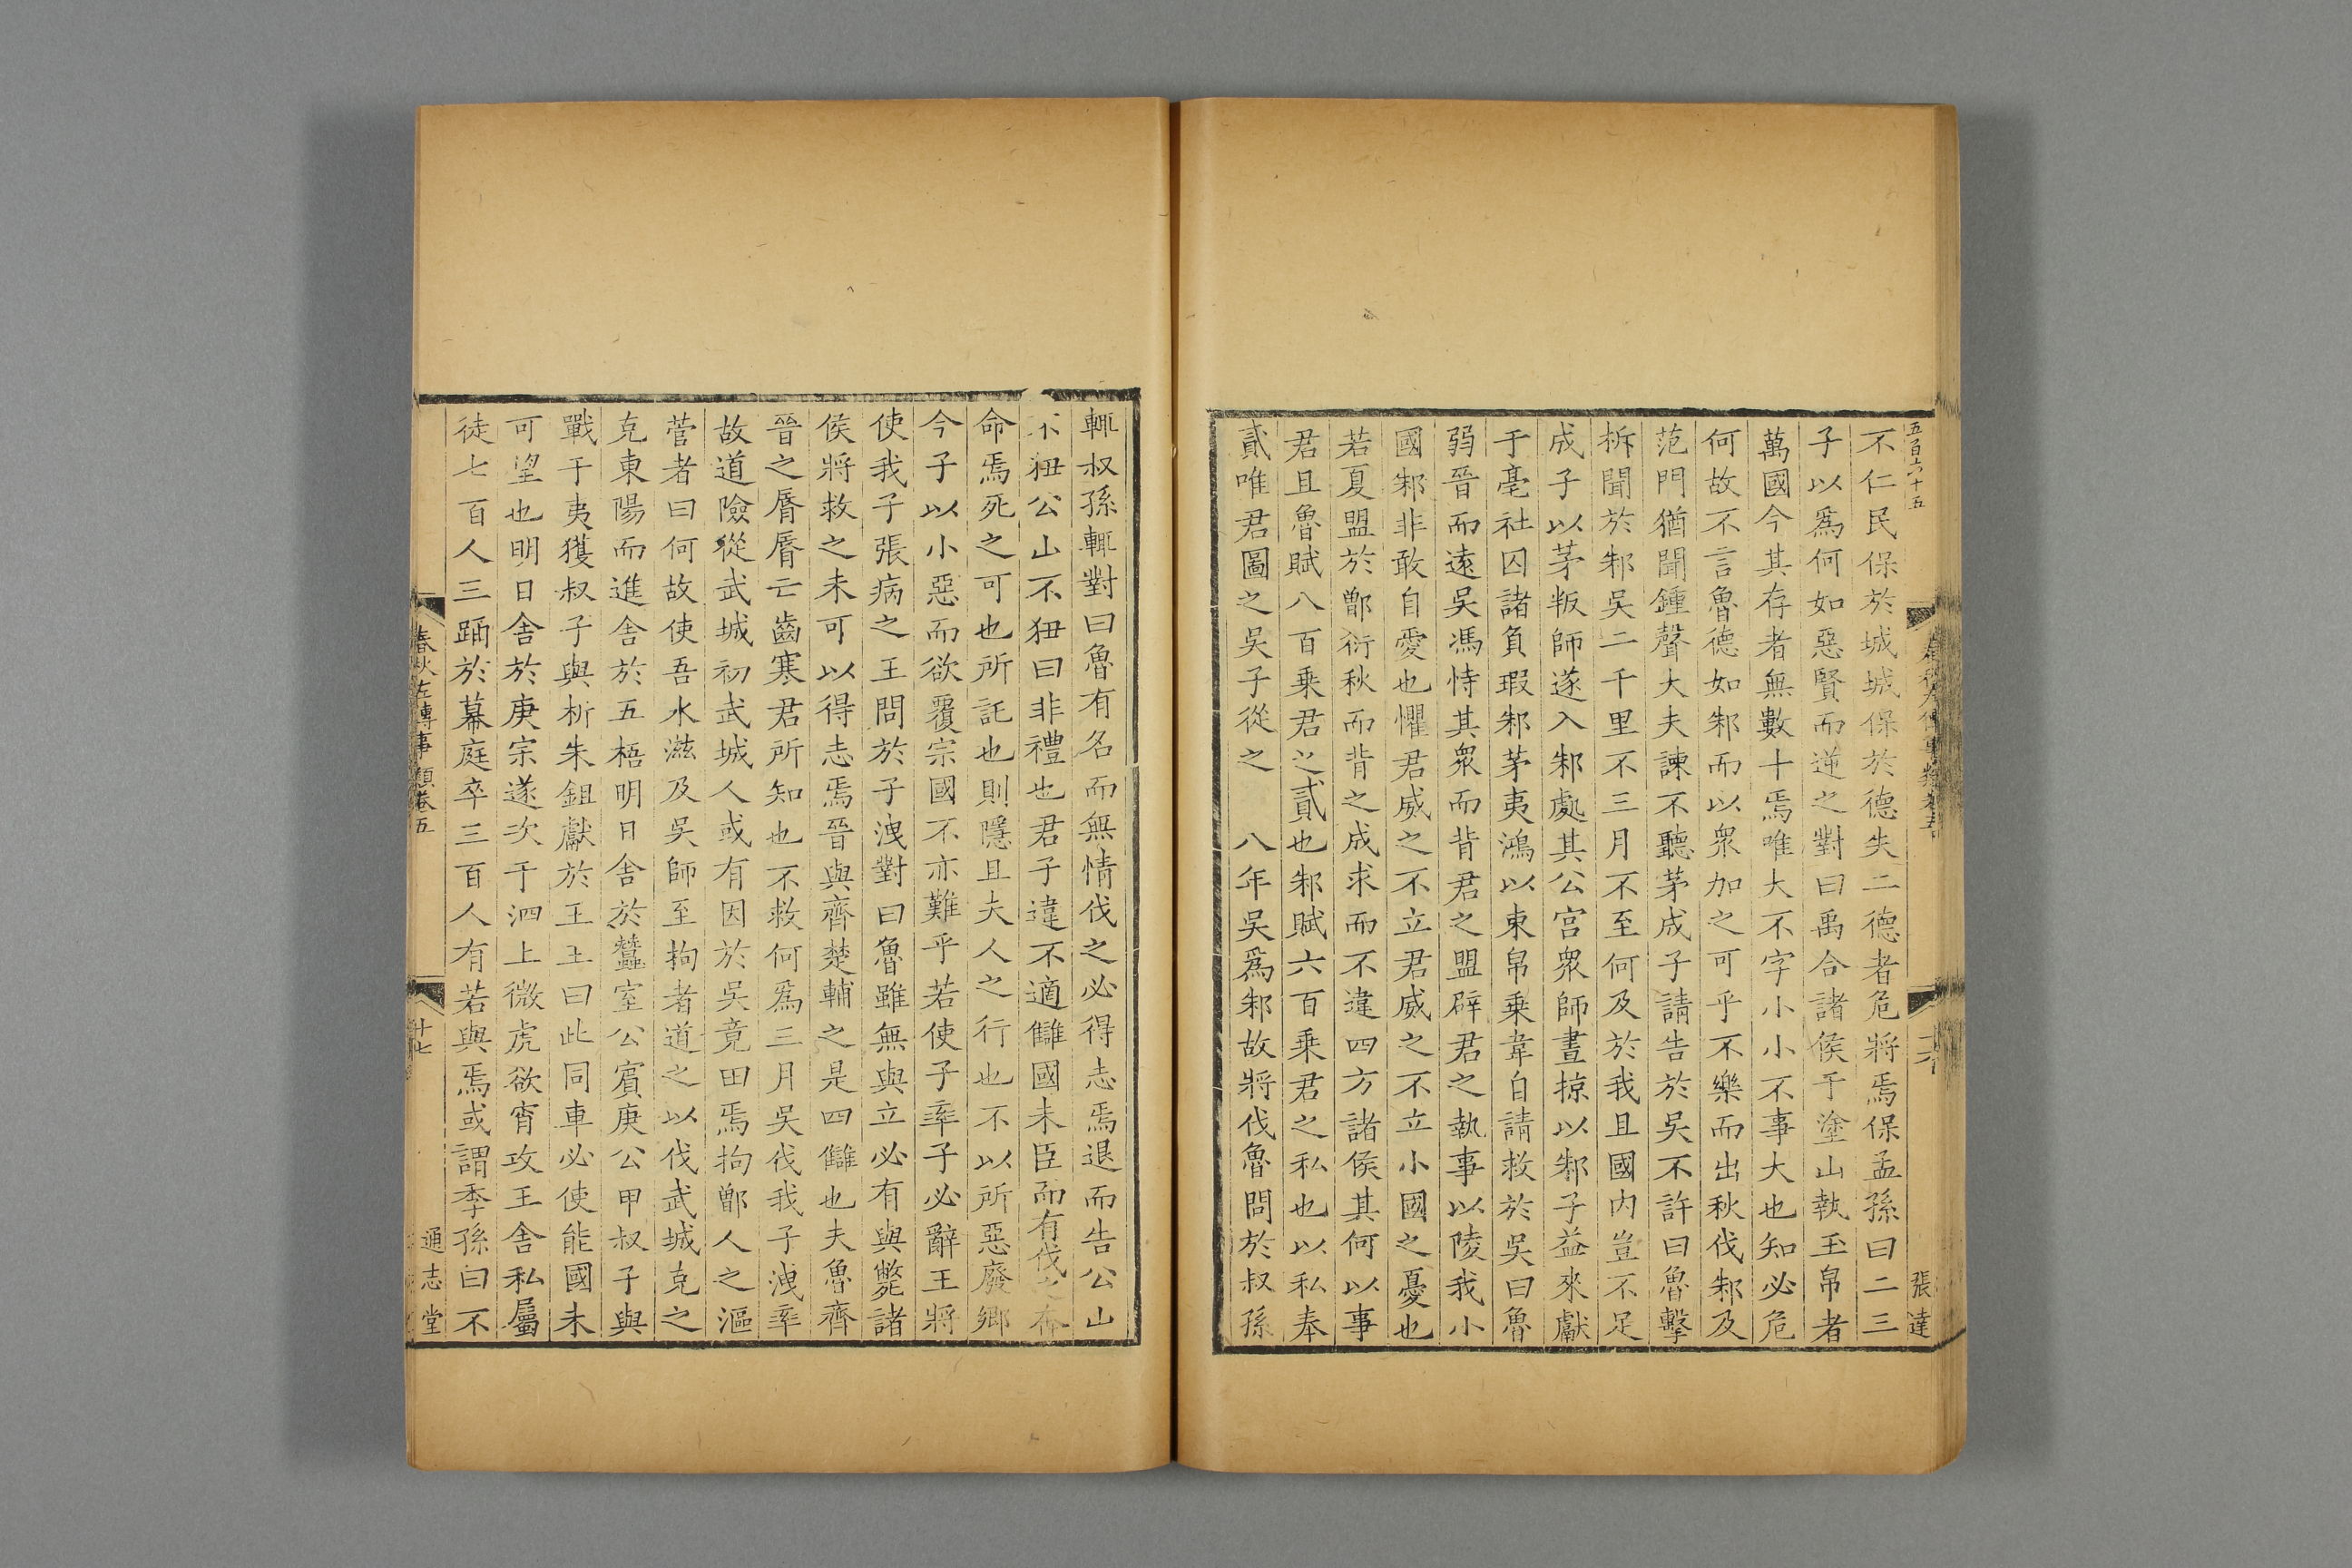 五百六十五
張達
不仁民保於城城保於德失二德者危將焉保孟孫曰二三
子以爲何如惡賢而逆之對曰禹合諸侯于塗山執玉帛者
萬國今其存者無數十焉唯大不字小小不事大也知必危
何故不言魯德如邾而以衆加之可乎不樂而出秋伐邾及
范門猶聞鍾聲大夫諫不聽茅成子請告於吳不許曰魯擊
柝聞於邾吳二千里不三月不至何及於我且國内豈不足
成子以茅叛師遂入邾處其公宮衆師晝掠以邾子益來獻
于亳社囚諸負瑕邾茅夷鴻以束帛乗韋自請救於吳曰魯
弱晉而遠吳馮恃其衆而背君之盟辟君之執事以陵我小
國邾非敢自愛也懼君威之不立君威之不立小國之憂也
若夏盟於鄫衍秋而背之成求而不違四方諸侯其何以事
君且魯賦八百乗君之貳也邾賦六百乗君之私也以私奉
貳唯君圖之吳子從之　八年吳爲邾故將伐魯問於叔孫
輒叔孫輒對曰魯有名而無情伐之必得志焉退而告公山
不狃公山不狃曰非禮也君子違不適讎國未臣而有伐之奔
命焉死之可也所託也則隱且夫人之行也不以所惡廢鄉
今子以小惡而欲覆宗國不亦難乎若使子率子必辭王將
使我子張病之王問於子洩對曰魯雖無與立必有與斃諸
侯將救之未可以得志焉晉與齊楚輔之是四讎也夫魯齊
晉之脣脣亡齒寒君所知也不救何爲三月吳伐我子洩率
故道險從武城初武城人或有因於吳竟田焉拘鄫人之漚
菅者曰何故使吾水滋及吳師至拘者道之以伐武城克之
克東陽而進舍於五梧明日舍於蠶室公賓庚公甲叔子與
戰于夷獲叔子與析朱鉏獻於王王曰此同車必使能國未
可望也明日舍於庚宗遂次于泗上微虎欲宵攻王舍私屬
徒七百人三踊於幕庭卒三百人有若與焉或謂季孫曰不
春秋左傳事類卷五
十七
通志堂